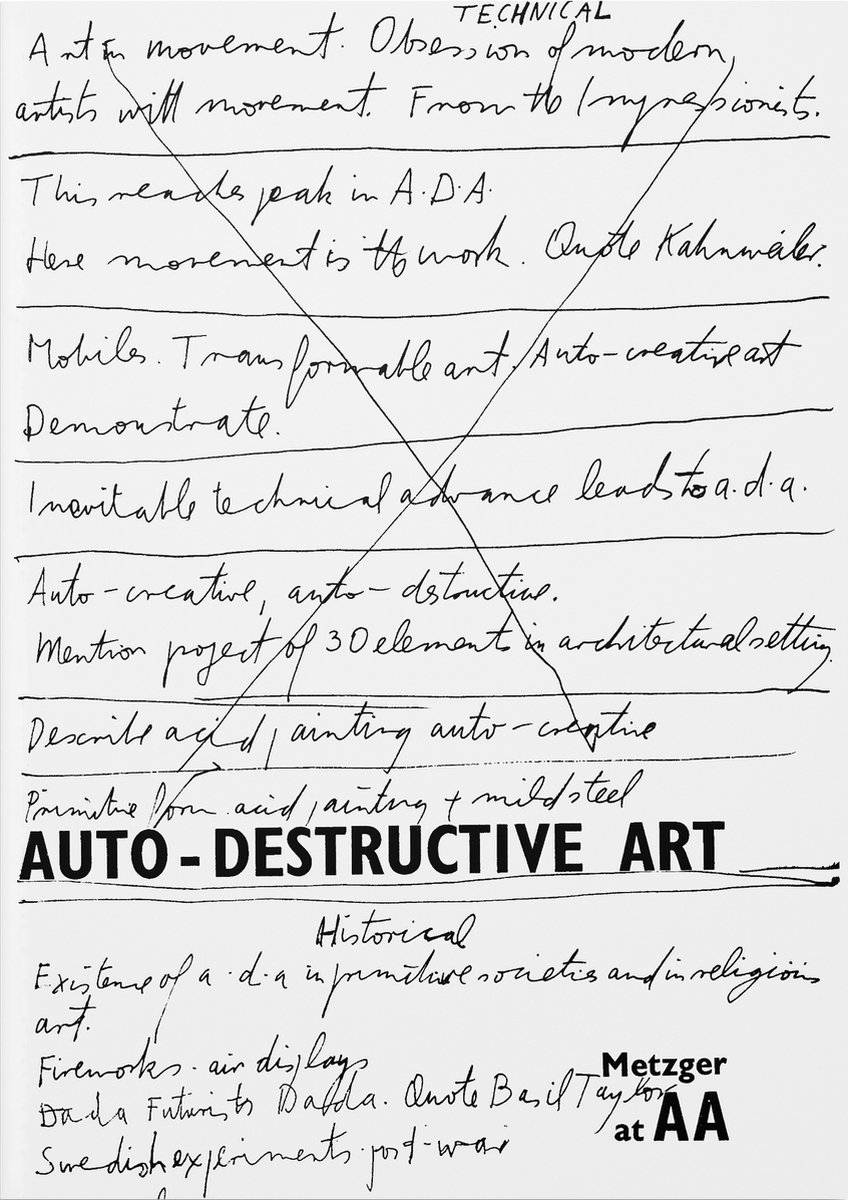 TECHNICAL
Art in movement. Obsession of modern
artists with movement. From the Impressionists.
This reaches peak in A.D.A.
Here movement is the work. Quote Kahnweiler.
Mobiles. Transformable art. Auto-creative art
Demonstrate.
Inevitable technical advance leads to a.d.a.
Auto-creative, auto-destructive.
Mention project of 30 elements in architectural setting
Describe acid painting auto-creative
Primitive form acid painting + mild steel
AUTO-DESTRUCTIVE ART
Historical
Existence of a.d.a in primitive societies and in religious
art.
Fireworks. air displays
Dada Futurists Dada. Quote Basil Taylor
Swedish experiments post-war
Metzger
at AA